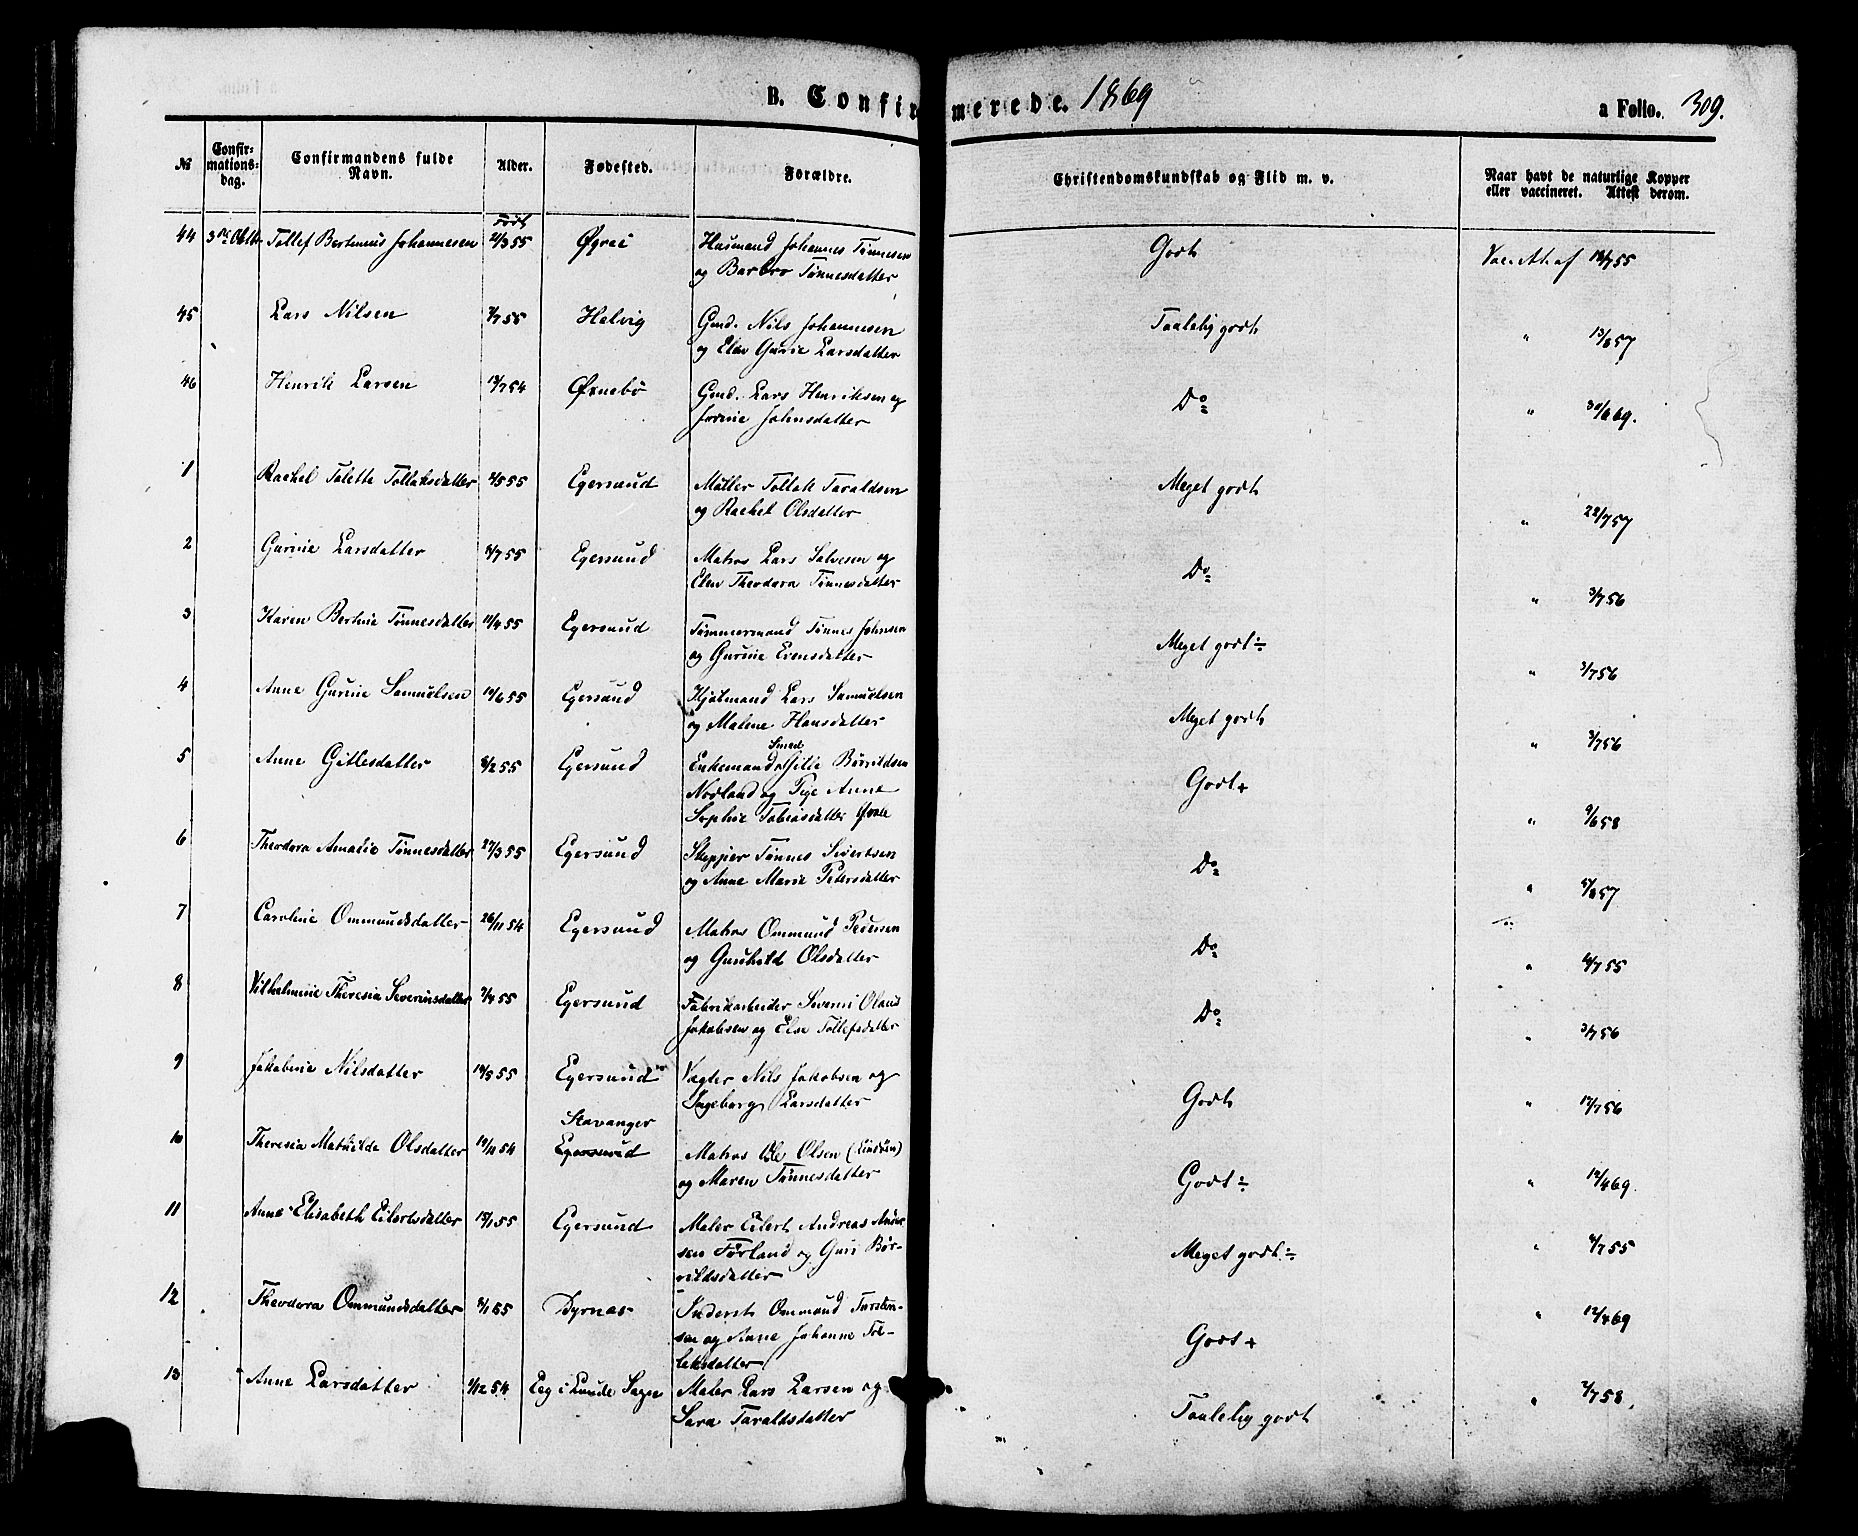 B. Confirmerede. 1869
a Folio. 309.
№ Confirmationsdag. Confirmandens fulde Navn. Alder. Fødested. Forældre. Christendomskundskab og Flid m. v. Naar havt de naturlige Kopper eller vaccineret. Attest derom.
født
44 3die Oktbr Tollef Bertinius Johannesen 21/3 55 Øgrei Husmand Johannes Tønnesen Godt Vac. At. af 18/7 55
og Barbro Tønnesdatter
45 Lars Nilsen 7/7 55 Helvig Gmd. Nils Johannesen Taalelig godt " 13/6 57
og Elen Gurie Larsdatter
46 Henrik Larsen 19/7 54 Øxnebø Gmd. Lars Henriksen og Do " 30/6 69.
Jorine Johnsdatter
1 Rachel Talette Tollaksdatter 4/5 55 Egersund Møller Tollak Taraldsen Meget godt " 22/7 57
og Rachel Olsdatter
2 Gurine Larsdatter 8/7 55 Egersund Matros Lars Salvesen og Do " 3/7 56
Elen Theodora Tønnesdatter
3 Karen Bertine Tønnesdatter 11/4 55 Egersund Tømmermand Tønnes Johnsen Meget godt ÷ " 3/7 56
og Gurine Evensdatter
4 Anne Gurine Samuelsen 10/6 55 Egersund Hjulmand Lars Samuelsen Meget godt " 3/7 56
og Malene Hansdatter
Smed
5 Anne Gitlesdatter 8/2 55 Egersund Enkemand Gitle Børrildsen Godt + " 9/6 58
Nodland og Pige Anne
Sophie Tobiasdatter
6 Theodora Amalie Tønnesdatter 27/3 55 Egersund Skipper Tønnes Sivertsen Do " 5/8 57
og Anne Marie Petersdatter
7 Caroline Ommundsdatter 26/11 54 Egersund Matros Ommund Pedersen Do " 6/7 55
og Gunhild Olsdatter
8 Vilhelmine Theresia Severinsdatter 7/4 55 Egersund Fabrikarbeider Severin Olaus Do " 3/7 56
Jakobsen og Else Tollefsdatter
9 Jakobine Nilsdatter 19/5 55 Egersund Vægter Nils Jakobsen og Godt " 17/7 56
Ingeborg Larsdatter
Stavanger
10 Theresia Mathilde Olsdatter 19/11 54 Egersund Matros Ole Olsen Godt ÷ " 12/4 69.
og Maren Tønnesdatter
11 Anne Elisabeth Eilertsdatter 15/1 55 Egersund Maler Eilert Andreas Ander- Meget godt ÷ " 4/7 55
sen Førland og Guri Bør-
rildsdatter
12 Theodora Ommundsdatter 8/1 55 Dyrnæs Inderst Ommund Torsten- Godt + " 12/4 69
sen og Anne Johanne Tol-
laksdatter
13 Anne Larsdatter 1/12 54 Eeg i Lunde Sogn Maler Lars Larsen og Taalelig godt " 2/7 58.
Sara Taraldsdatter